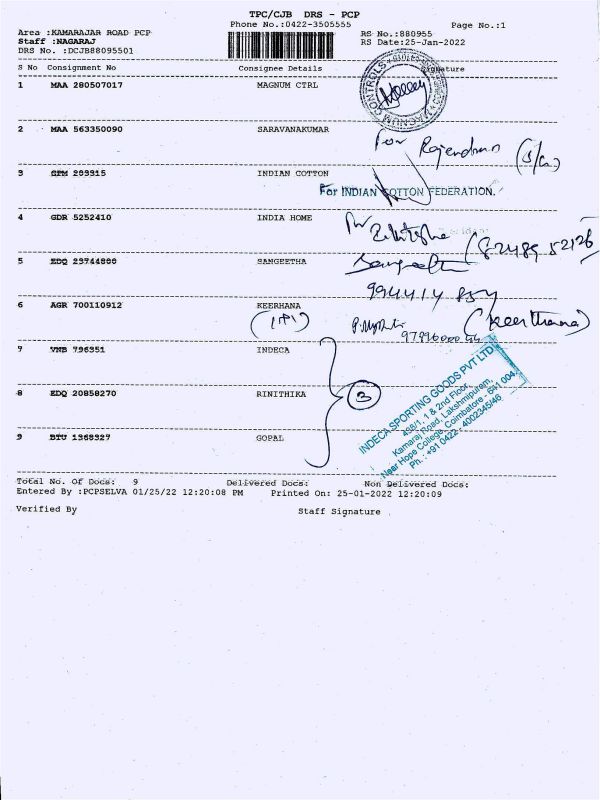 TPC/CJB DRS - PCP
Phone No.:0422-3505555
Page No.:1
Area :KAMARAJAR ROAD PCP
RS No.:880955
Staff :NAGARAJ
RS Date:25-Jan-2022
DRS No. :DCJB88095501
S No Consignment No Consignee Details Signature
1 MAA 280507017 MAGNUM CTRL
MAGNUM CONTROLS
2 MAA 563350090 SARAVANAKUMAR
For Rajendran
3 GPM 203315 INDIAN COTTON
For INDIAN COTTON FEDERATION.
4 GDR 5252410 INDIA HOME
82489 52126
5 EDQ 23744888 SANGEETHA
Sangeetha
6 AGR 700110912 KEERHANA
(Keerthana)
7 VNB 796351 INDECA
8 EDQ 20858270 RINITHIKA
3
9 BTU 1368327 GOPAL
INDECA SPORTING GOODS PVT LTD
498/1, 1 & 2nd Floor,
Kamaraj Road, Lakshmipuram,
Near Hope College, Coimbatore - 641 004.
Ph.: +91 0422 - 4002345/46
Total No. Of Docs: 9 Delivered Docs: Non Delivered Docs:
Entered By :PCPSELVA 01/25/22 12:20:08 PM Printed On: 25-01-2022 12:20:09
Verified By Staff Signature